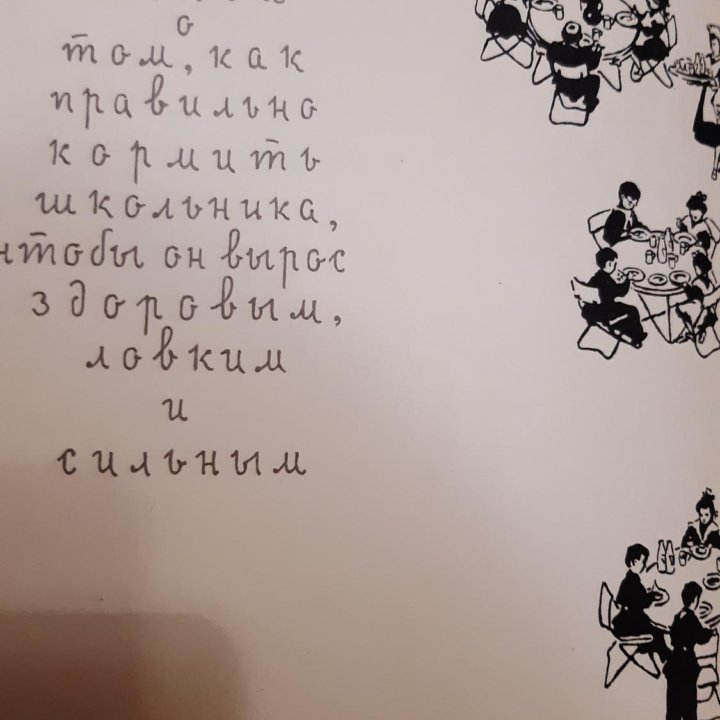 о
том, как
правильно
кормить
школьника,
чтобы он вырос
здоровым,
ловким
и
сильным